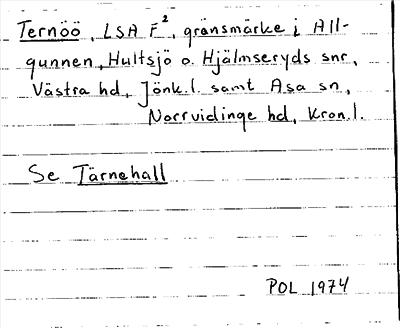 Ternöö, LSA F², gränsmärke i All-
gunnen, Hultsjö o. Hjälmseryds snr,
Västra hd, Jönk.l. samt Asa sn,
Norrvidinge hd, Kron.l.
Se Tärnehall
POL 1974